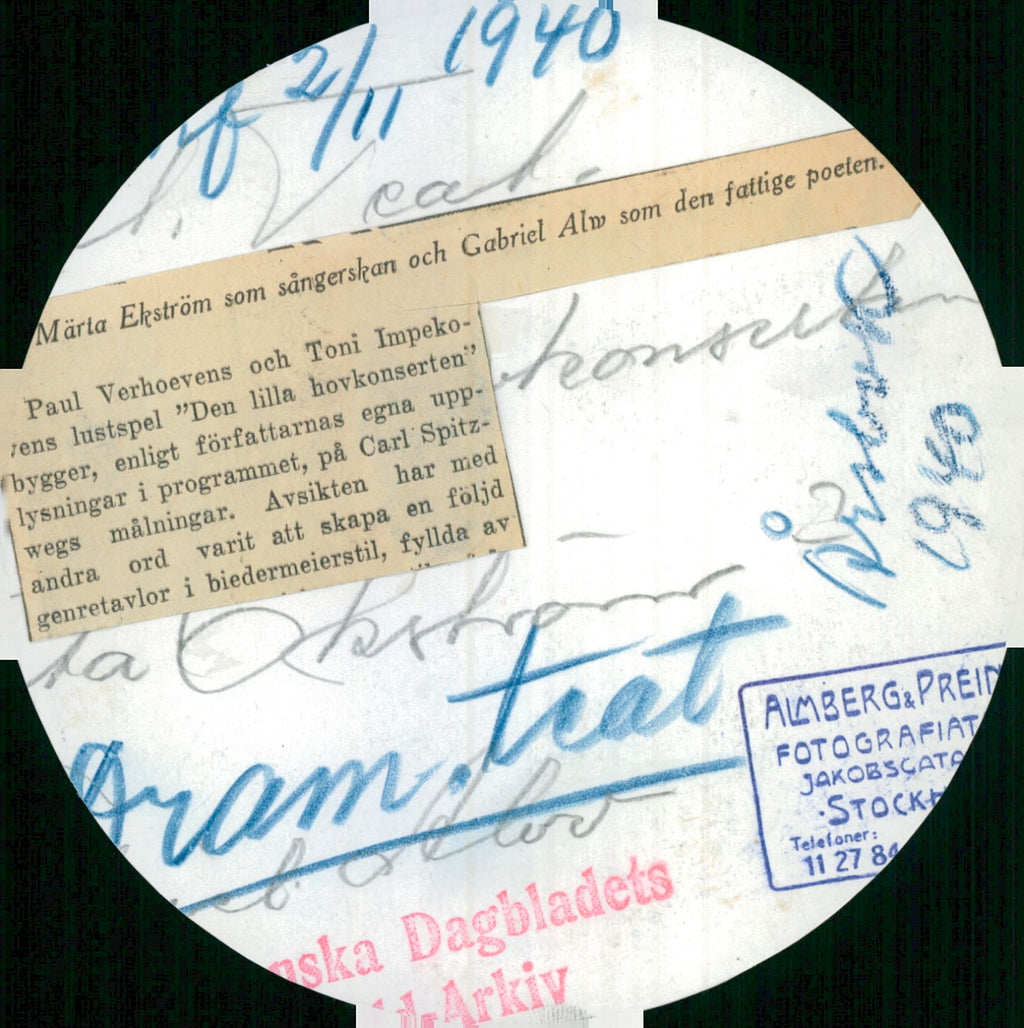 2/11 1940
Märta Ekström som sångerskan och Gabriel Alw som den fattige poeten.
Paul Verhoevens och Toni Impeko-
vens lustspel ”Den lilla hovkonserten”
bygger, enligt författarnas egna upp-
lysningar i programmet, på Carl Spitz-
wegs målningar. Avsikten har med
andra ord varit att skapa en följd
genretavlor i biedermeierstil, fyllda av
konserten
Årsboken
1940
ta Ekström
Dram. teat
Alw
ALMBERG & PREIN
FOTOGRAFIAT
JAKOBSGATA
·STOCKH
Telefoner:
11 27 84
nska Dagbladets
ld-Arkiv